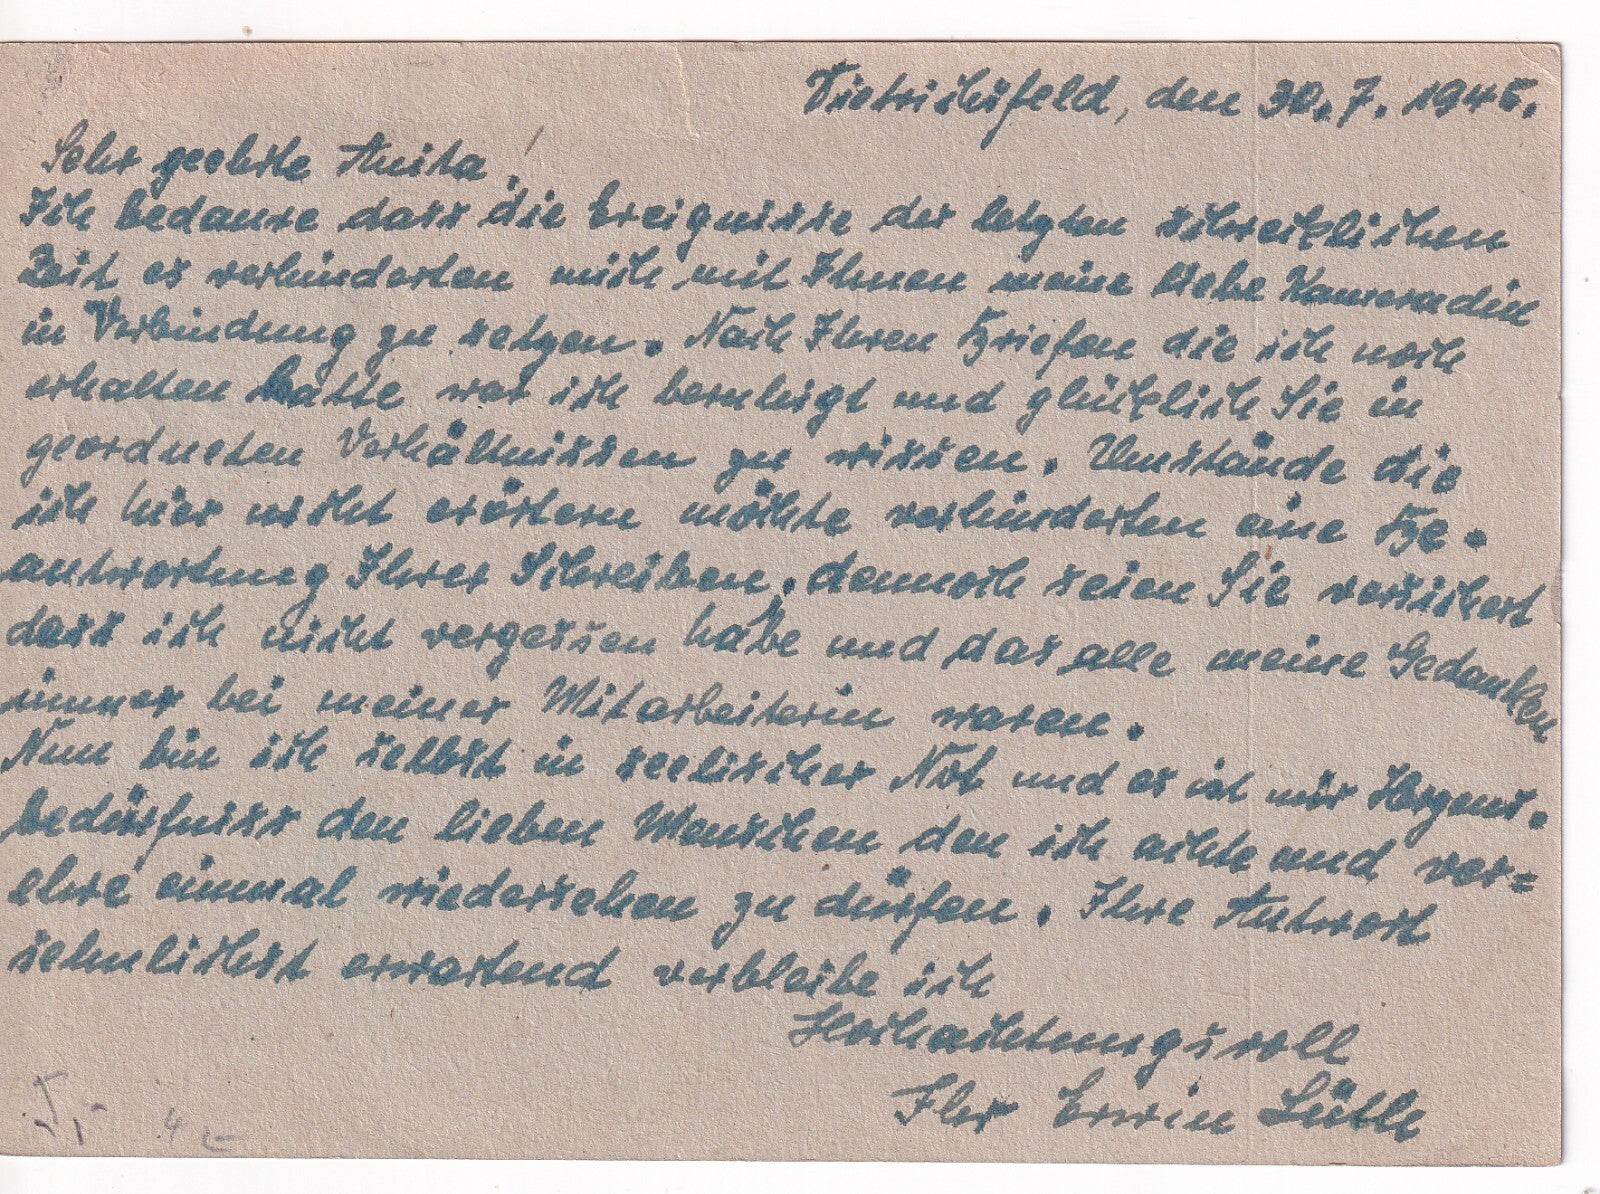 Dietrichsfeld, den 30.7.1945.
Sehr geehrte Anita!
Ich bedaure dass die Ereignisse der letzten schrecklichen
Zeit es verhinderten mich mit Ihnen meine liebe Kameradin
in Verbindung zu setzen. Nach Ihren Briefen die ich noch
erhalten hatte war ich beruhigt und glücklich Sie in
geordneten Verhältnissen zu wissen. Umstände die
ich hier nicht erörtern möchte verhinderten eine Be=
antwortung Ihrer Schreiben, dennoch seien Sie versichert
dass ich nicht vergessen habe und das alle meine Gedanken
immer bei meiner Mitarbeiterin waren.
Nun bin ich selbst in seelischer Not und es ist mir Herzens-
bedürfniss den lieben Menschen den ich achte und ver=
ehre einmal wiedersehen zu dürfen. Ihre Antwort
sehnlichst erwartend verbleibe ich
Hochachtungsvoll
Ihr Erwin
5,- 4